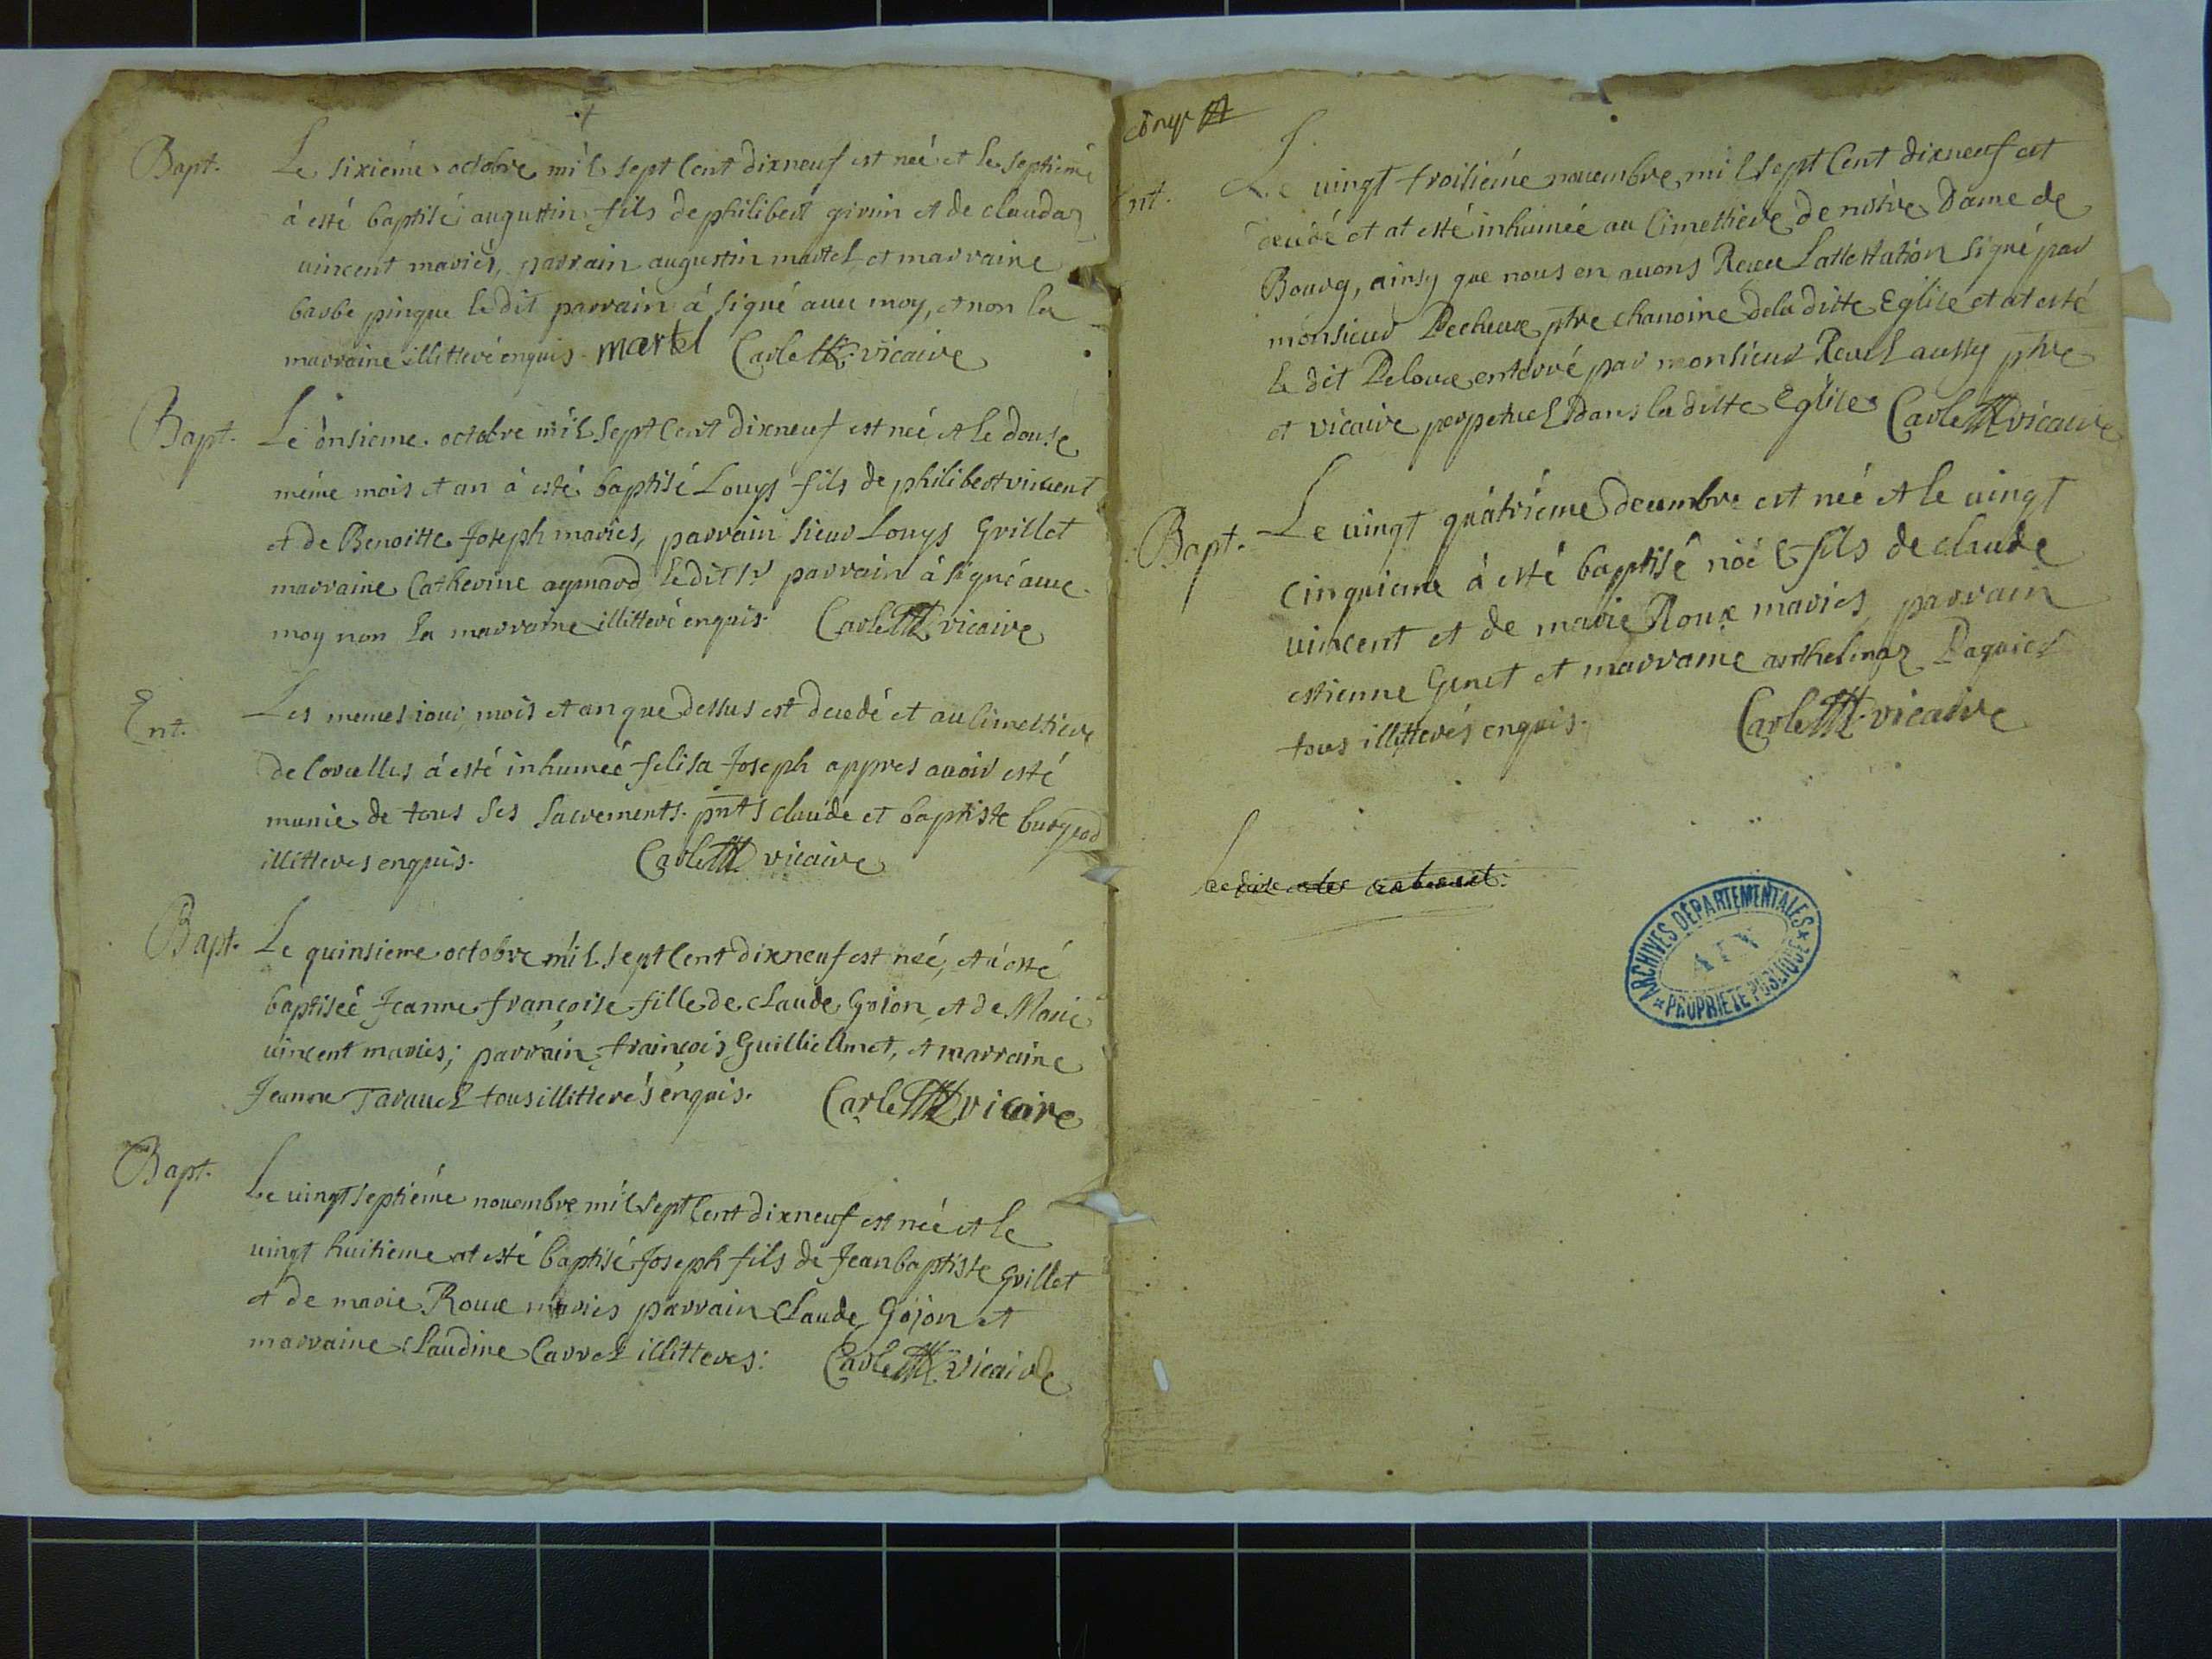 Bapt. Le sixiéme octobre mil sept Cent dixneuf est neé et le septieme
à esté baptisé augustin fils de philibert girin et de claudaz
uincent mariés, parrain augustin martel et marraine
barbe pingue le dit parrain à signé auec moy, et non la
marraine illitteré enquis. martel Carlett vicaire
Bapt. Le onsieme octobre mil sept Cent dixneuf est neé et le douse
méme mois et an à esté baptisé Louys fils de philibert vincent
et de Benoitte Joseph maries, parrain sieur Louys Grillet
marraine Catherine aymard ledit sr parrain à signé auec
moy non la marraine illitteré enquis. Carlett vicaire
Ent. Les memes iour mois et an que dessus est decedé et au Cimettiere
de Corcelles à esté inhumeé felisa Joseph appres auoir esté
munie de tous ses sacrements. pnts claude et baptiste burgod
illitteres enquis. Carlett vicaire
Bapt. Le quinsieme octobre mil sept Cent dixneuf est neé, et à esté
baptiseé Jeanne françoise fille de claude Gojon et de Marie
uincent maries; parrain françois Guilliermet, et marraine
Jeanne Tarauel tous illitterés enquis. Carlett vicaire
Bapt. Le uingt septiéme nouembre mil sept Cent dixneuf est neé et le
uingt huitieme at esté baptisé Joseph fils de Jean baptiste Grillet
et de marie Roux maries parrain Claude Gojon et
marraine Claudine Carrel illitteres: Carlett vicaire
Ent. Le uingt troisiéme nouembre mil sept Cent dixneuf est
decedé et at esté inhumeé au Cimettiere de nostre Dame de
Bourg, ainsy que nous en auons Receu Lattestation signé par
monsieur Pecheux ptre chanoine de la ditte Eglise et at esté
le dit Deloux enterré par monsieur Reuel aussy ptre
et vicaire perpetuel dans la ditte Eglise Carlett vicaire
Bapt. Le uingt quátriéme decembre est neé et le uingt
Cinquieme à esté baptisé nöél fils de claude
uincent et de marie Roux maries parrain
estienne Genet et marraine anthelmaz Paquier
tous illitterés enquis. Carlett vicaire
ARCHIVES DÉPARTEMENTALES
AIN
PROPRIÉTÉ PUBLIQUE